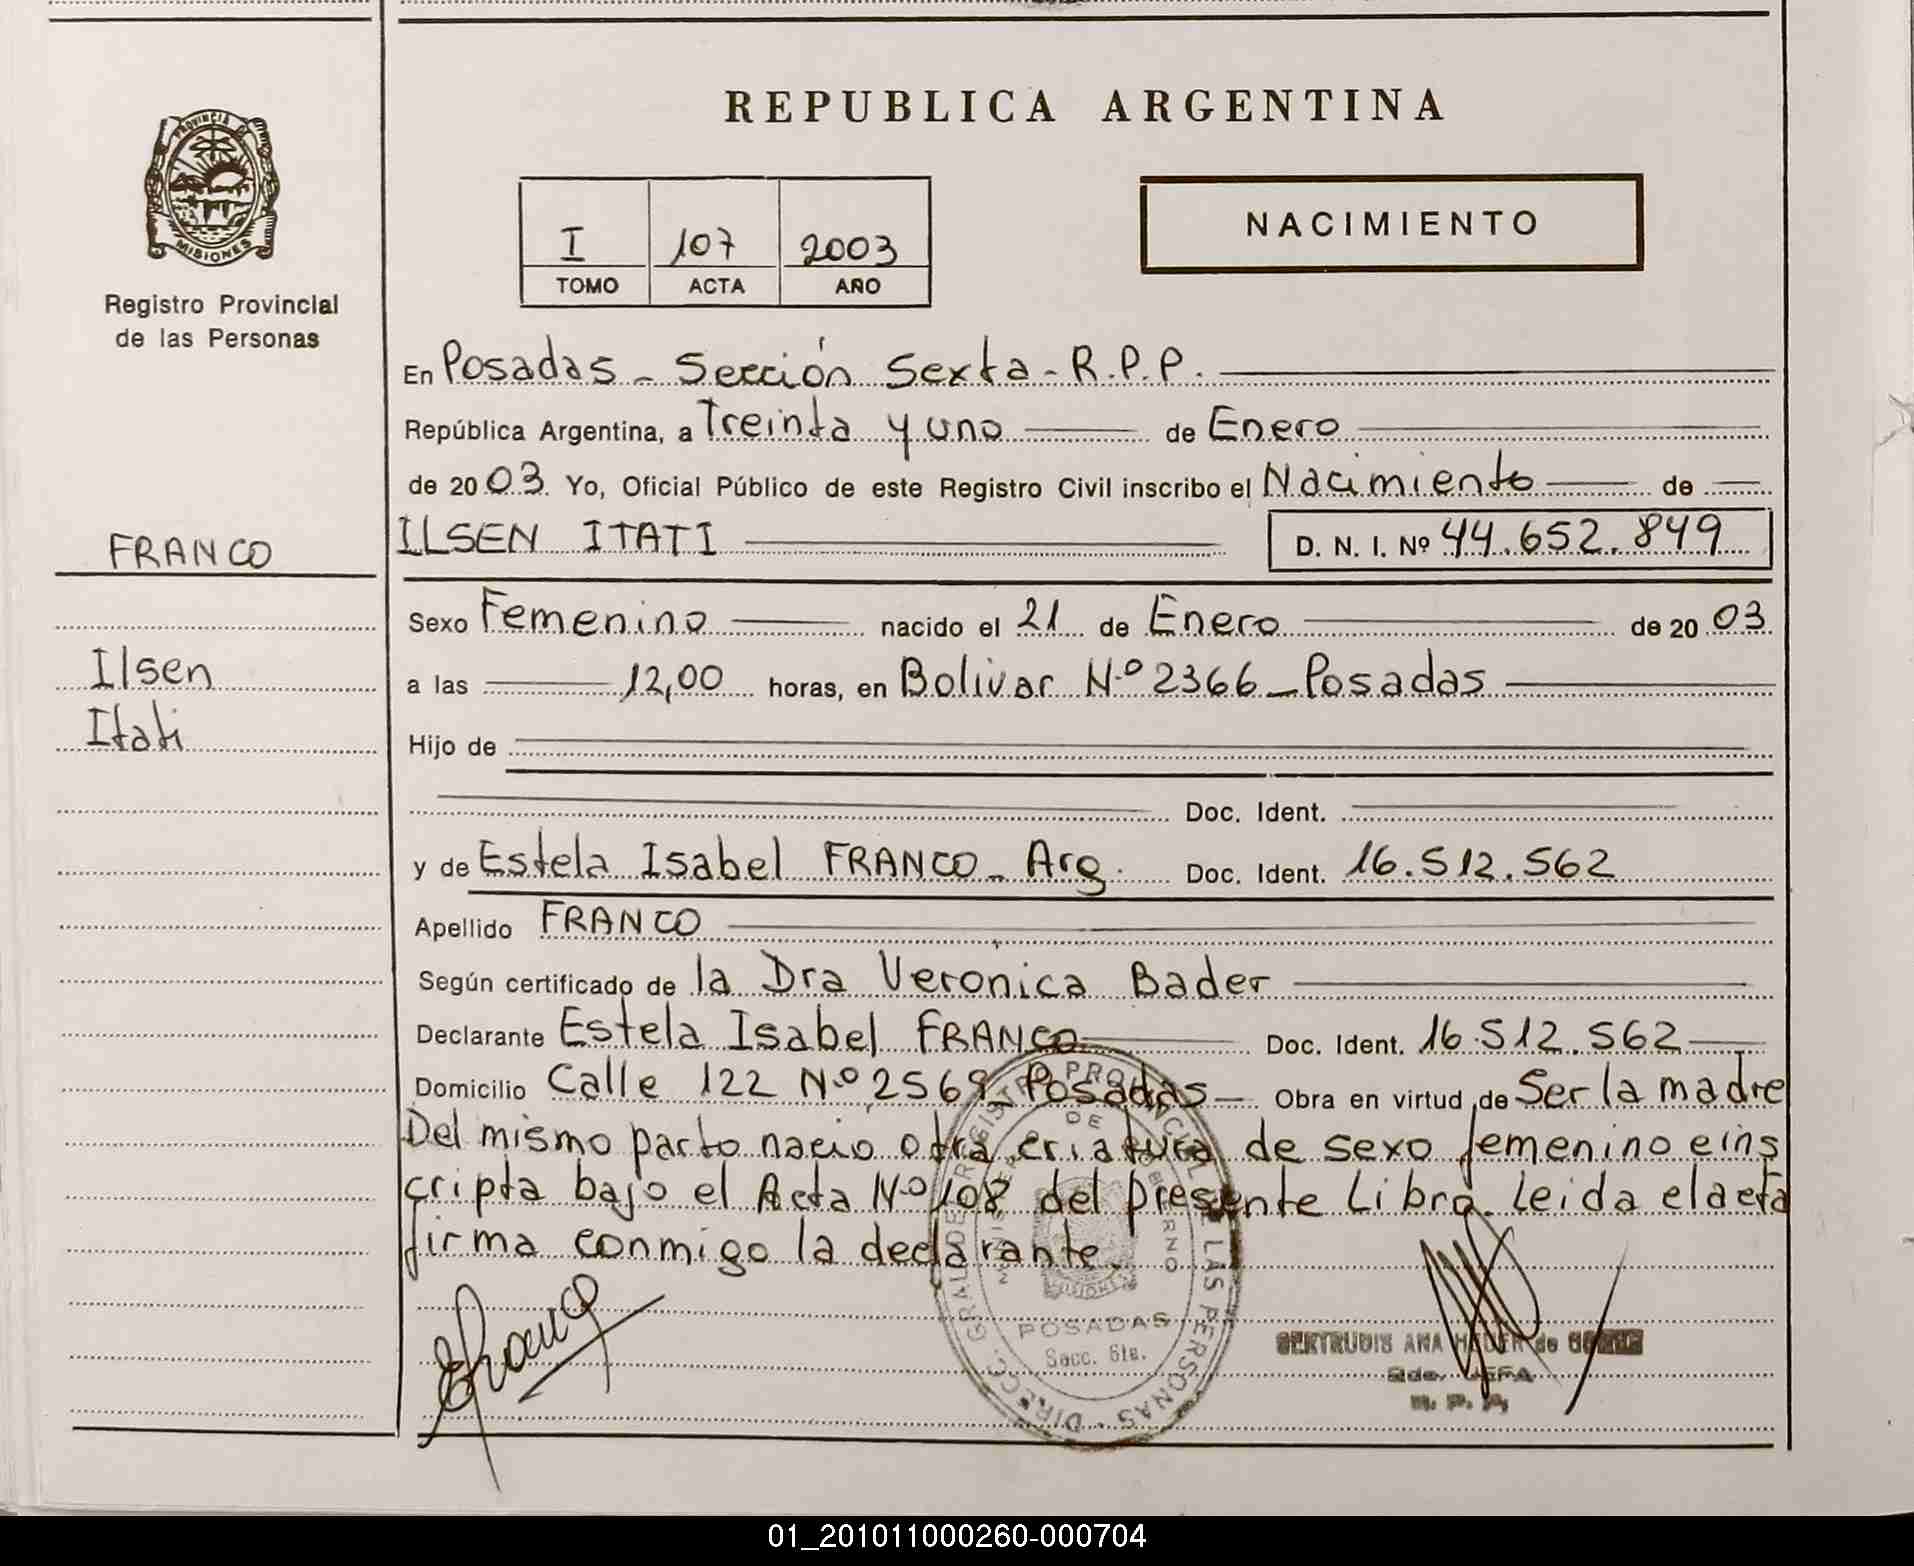 REPUBLICA ARGENTINA
PROVINCIA D
MISIONES
Registro Provincial
de las Personas
I 107 2003
TOMO ACTA AÑO
NACIMIENTO
En Posadas - Sección Sexta - R.P.P.
República Argentina, a Treinta y uno de Enero
de 2003. Yo, Oficial Público de este Registro Civil inscribo el Nacimiento de
FRANCO
ILSEN ITATI D. N. I. Nº 44.652.849
Sexo Femenino nacido el 21 de Enero de 2003
Ilsen
a las 12,00 horas, en Bolivar Nº 2366 - Posadas
Itati
Hijo de
Doc. Ident.
y de Estela Isabel FRANCO - Arg. Doc. Ident. 16.512.562
Apellido FRANCO
Según certificado de la Dra Veronica Bader
Declarante Estela Isabel FRANCO Doc. Ident. 16.512.562
Domicilio Calle 122 Nº 2569 Posadas Obra en virtud de Ser la madre
Del mismo parto nacio otra criatura de sexo femenino e ins
cripta bajo el Acta Nº 108 del presente Libro. Leida el acta
firma conmigo la declarante.
EFranco
DIRECC. GRAL DE REGISTRO PROVINCIAL DE LAS PERSONAS
MINISTERIO DE GOBIERNO
MISIONES
POSADAS
Secc. 6ta.
GERTRUDIS ANA HEDER de
JEFA
R. P. P.
01_201011000260-000704